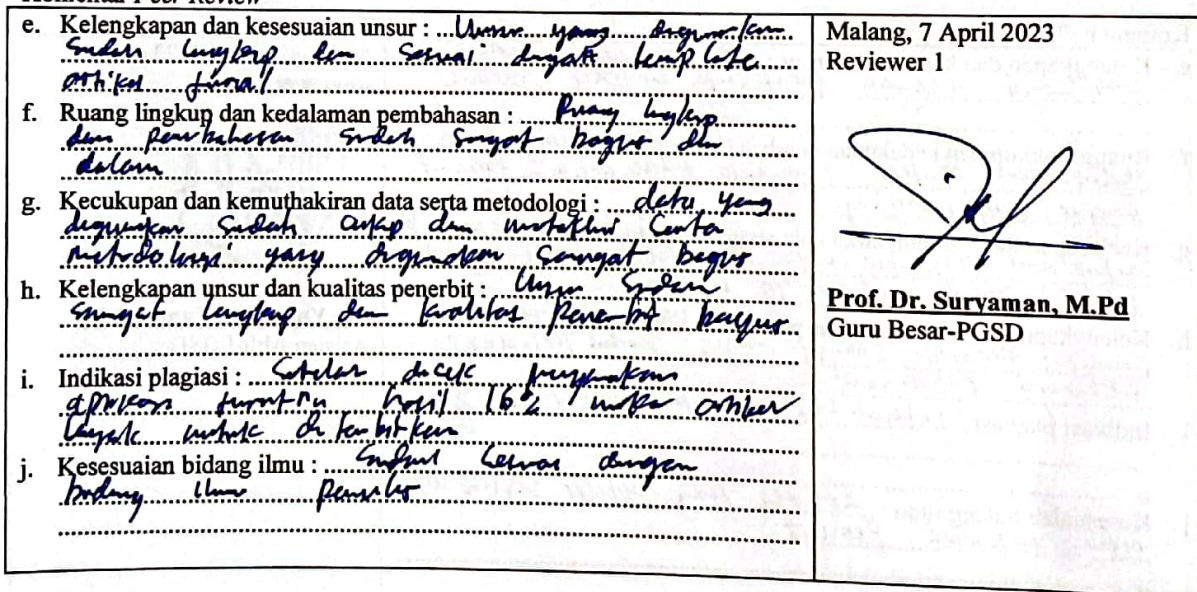 Komentar Peer Review
e. Kelengkapan dan kesesuaian unsur : Unsur yang digunakan
Sudah lengkap dan sesuai dengan template
artikel jurnal
f. Ruang lingkup dan kedalaman pembahasan : Ruang lingkup
dan pembahasan sudah sangat bagus dan
dalam
g. Kecukupan dan kemuthakiran data serta metodologi : data yang
digunakan sudah cukup dan mutakhir serta
metodologi yang digunakan sangat bagus
h. Kelengkapan unsur dan kualitas penerbit : Unsur sudah
sangat lengkap dan kualitas penerbit bagus
i. Indikasi plagiasi : Setelah dicek menggunakan
aplikasi turnitin hasil 16% maka artikel
layak untuk diterbitkan
j. Kesesuaian bidang ilmu : Sudah sesuai dengan
bidang ilmu penulis
Malang, 7 April 2023
Reviewer 1
Prof. Dr. Suryaman, M.Pd
Guru Besar-PGSD